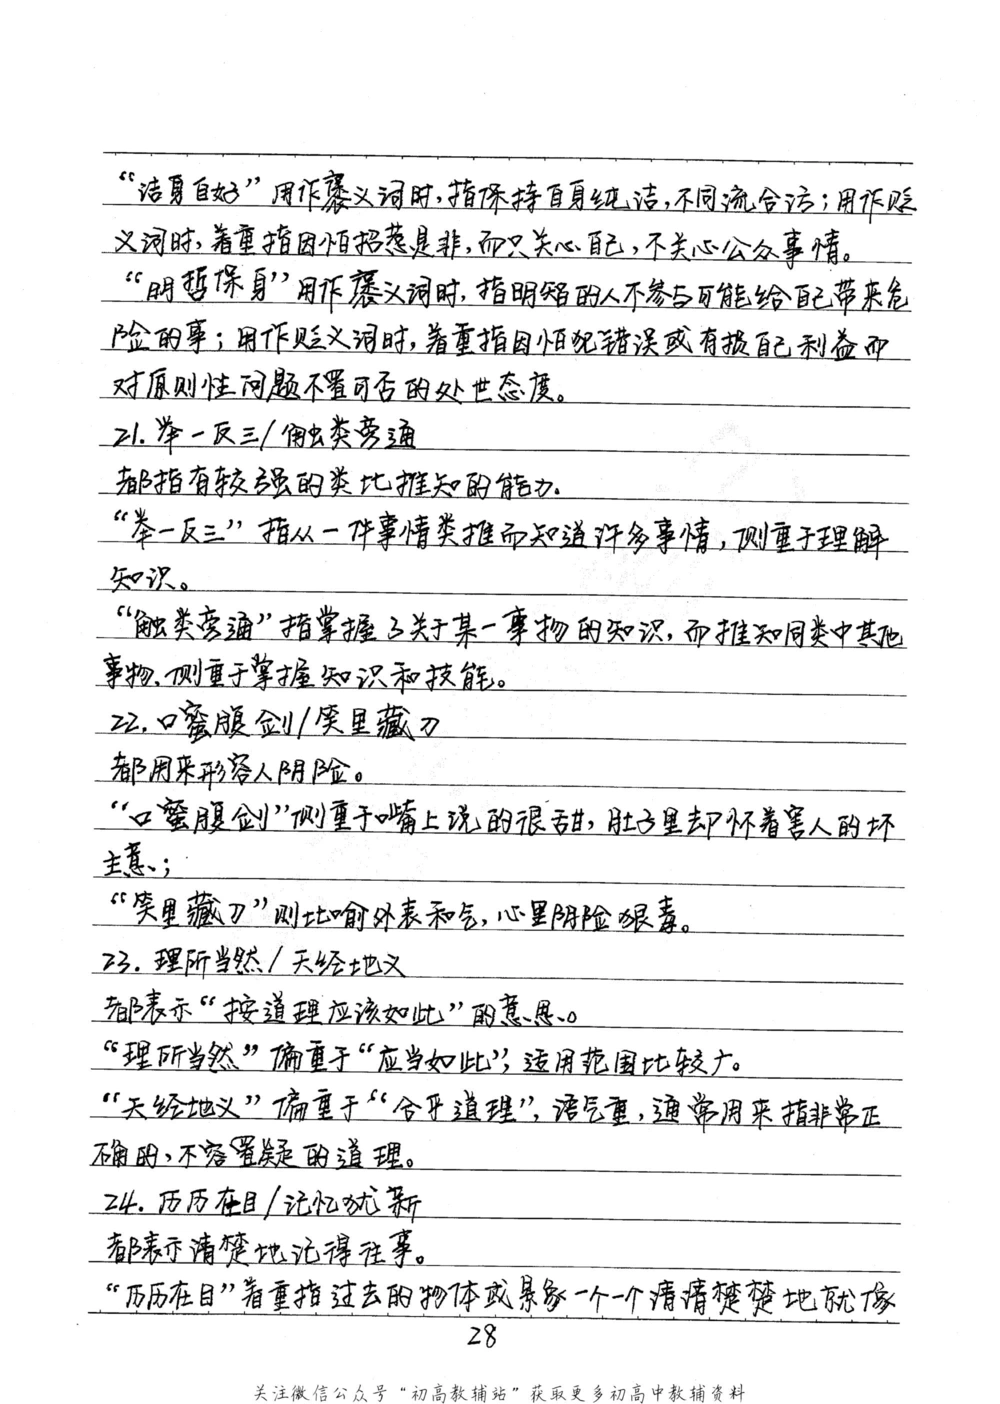 “洁身自好”用作褒义词时，指保持自身纯洁，不同流合污；用作贬
义词时，着重指因怕招惹是非，而只关心自己，不关心公众事情。
“明哲保身”用作褒义词时，指明智的人不参与可能给自己带来危
险的事；用作贬义词时，着重指因怕犯错误或有损自己利益而
对原则性问题不置可否的处世态度。
21.举一反三/触类旁通
都指有较强的类比推知的能力。
“举一反三”指从一件事情类推而知道许多事情，侧重于理解
知识。
“触类旁通”指掌握了关于某一事物的知识，而推知同类中其他
事物、侧重于掌握知识和技能。
22.口蜜腹剑/笑里藏刀
都用来形容人阴险。
“口蜜腹剑”侧重于嘴上说的很甜，肚子里却怀着害人的坏
主意、；
“笑里藏刀”则比喻外表和气，心里阴险狠毒。
23.理所当然/天经地义
都表示“按道理应该如此”的意思。
“理所当然”偏重于“应当如此”，适用范围比较广。
“天经地义”偏重于“合乎道理”，语气重，通常用来指非常正
确的，不容置疑的道理。
24.历历在目/记忆犹新
都表示清楚地记得往事。
“历历在目”着重指过去的物体或景象一个一个清清楚楚地就像
28
关注微信公众号“初高教辅站”获取更多初高中教辅资料